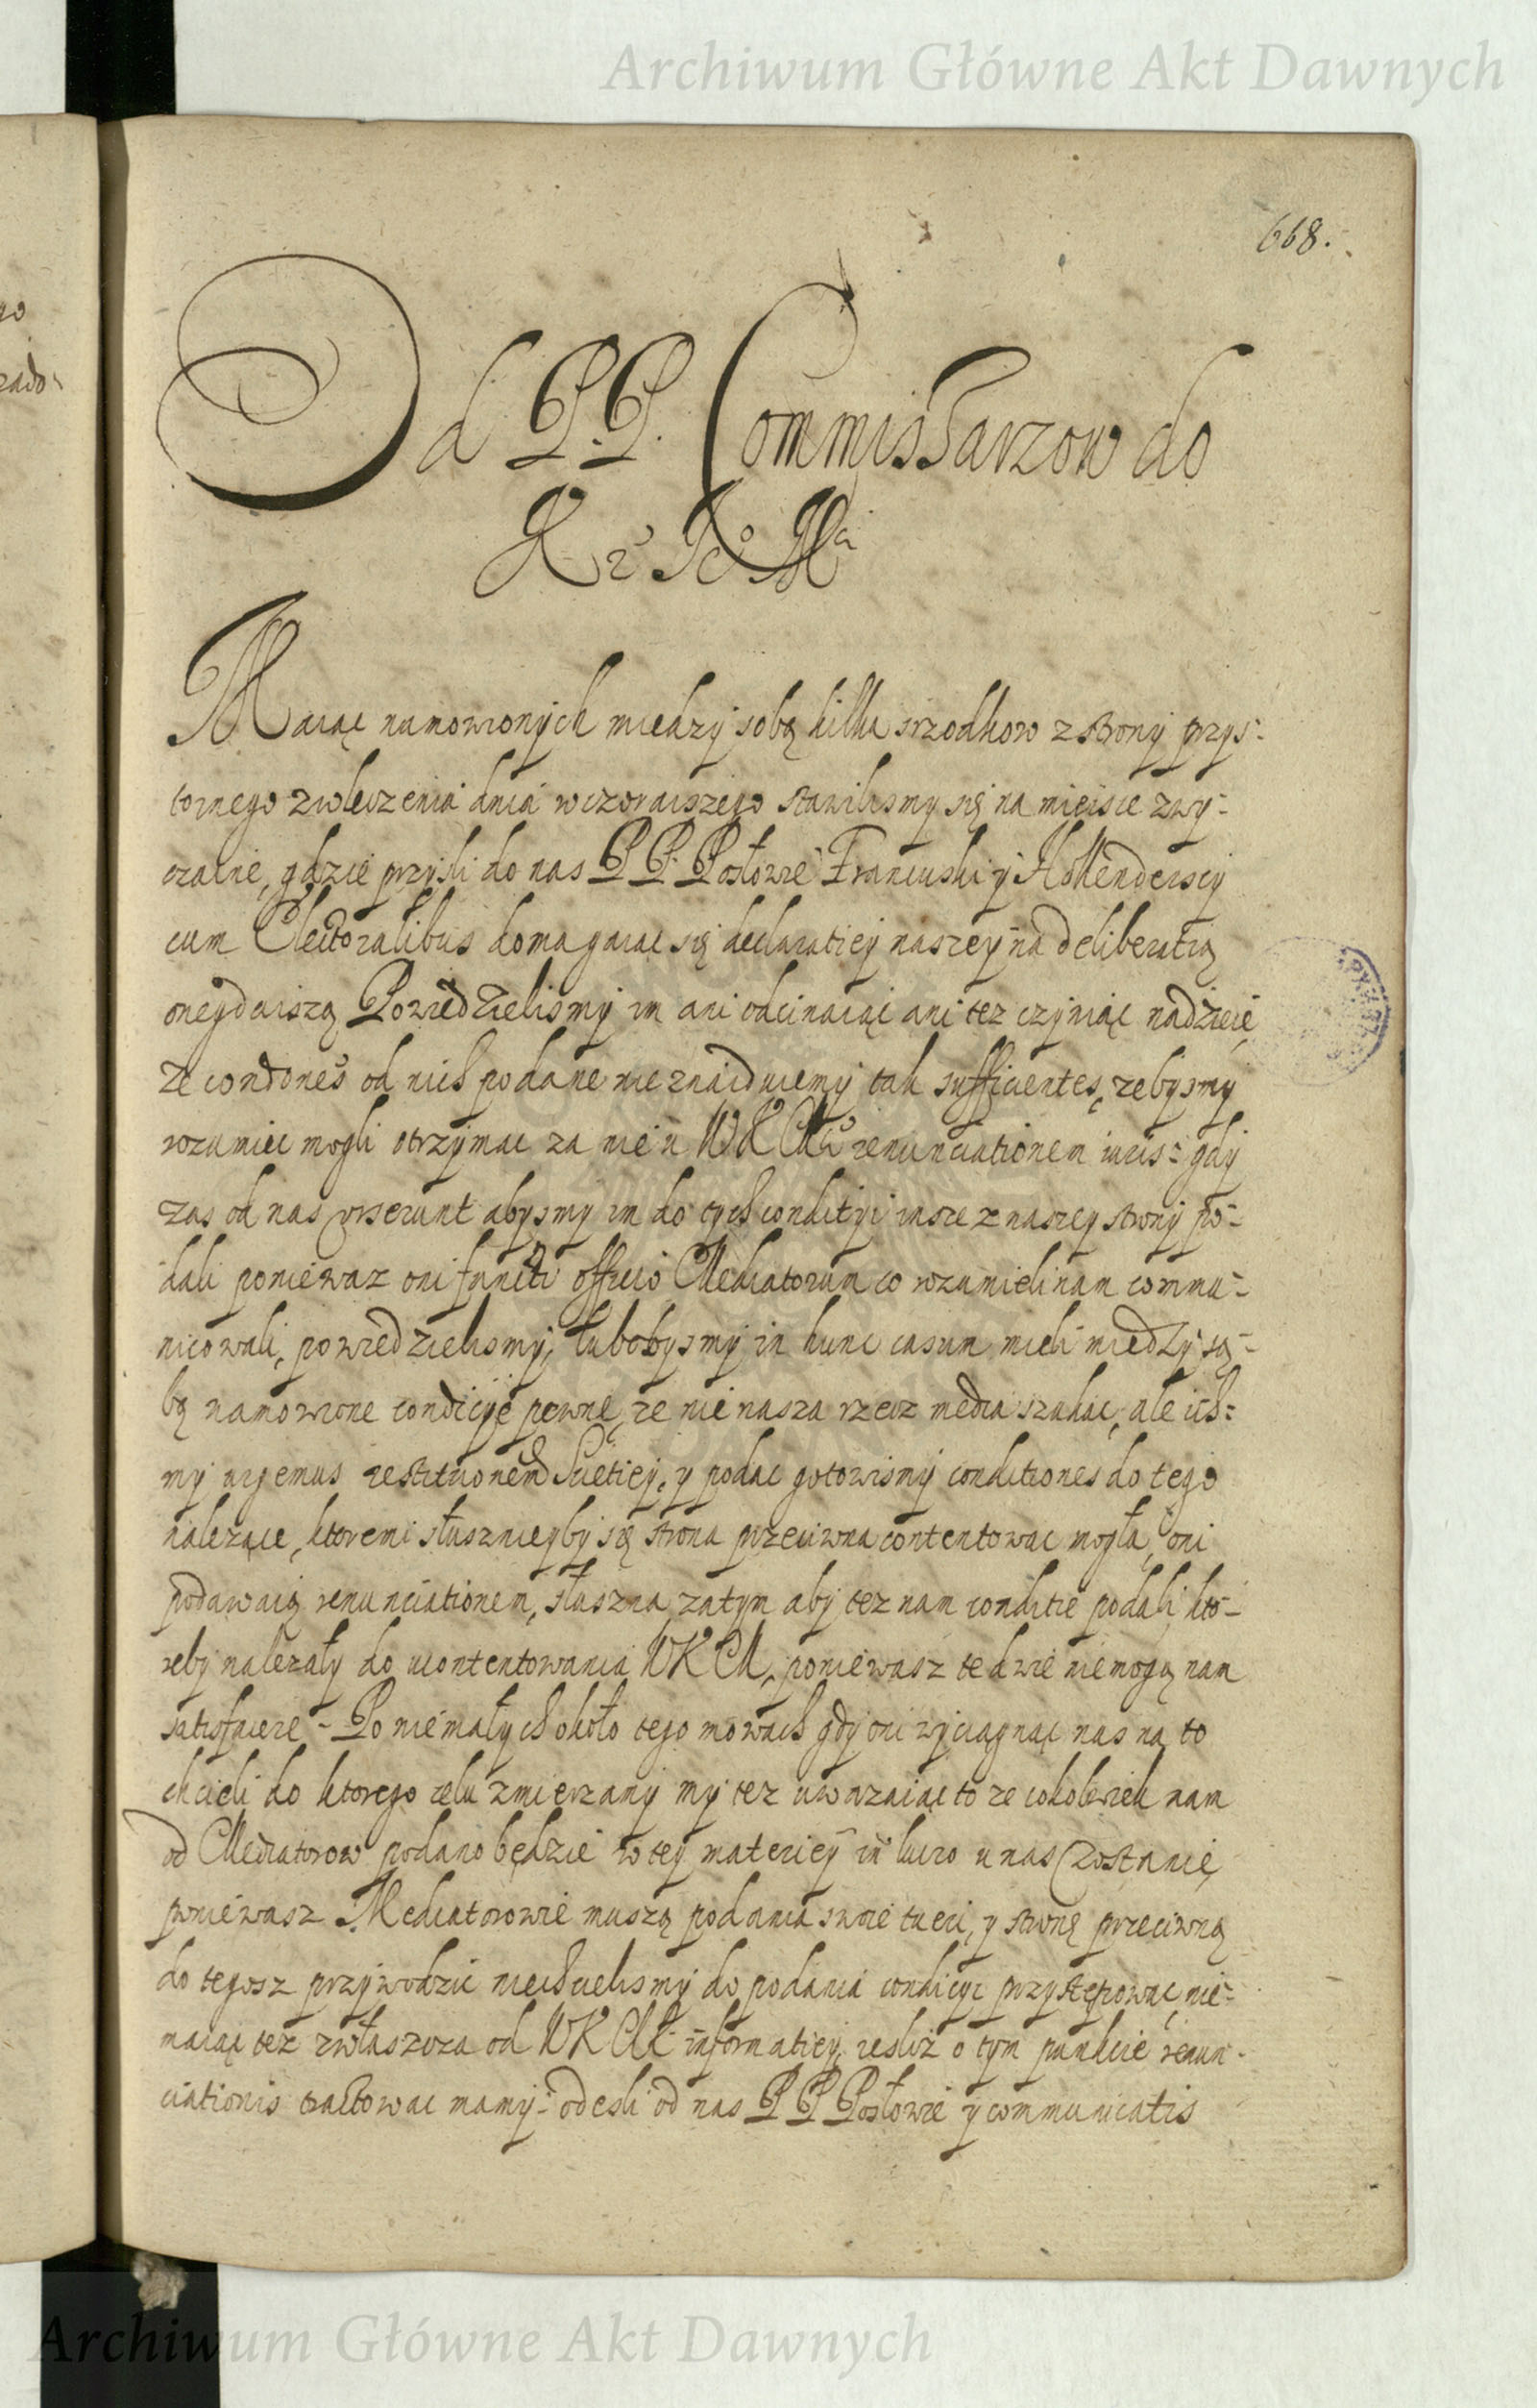 Archiwum Główne Akt Dawnych
668.
Od P.P. Commissarzow do
K. Jeº Mci
Maiąc namowionych miedzy sobą kilka srzodkow z strony przys-
toinego zwleczenia dnia wczoraiszego stawilismy się na mieisce zwy-
czaine, gdzie przysli do nas P.P. Posłowie Francuski y Hollenderscy
cum Electoralibus domagaiąc się declaratiey naszey na deliberatią
oneydaiszą Powiedzielismy im ani odcinaiąc ani tez czyniąc nadzieię
ze condones od nich podane nie znaiduiemy tak sufficientes, zebysmy
rozumiec mogli otrzymac za nie u WKMci renunciationem iuris: gdy
zas od nas urserunt abysmy im do tych conditiy insze z naszey strony po-
dali poniewaz oni functi officio Mediatorum co rozumieli nam commu-
nicowali, powiedzielismy, lubobysmy in hunc casum mieli miedzy so-
bą namowione condicye pewne, ze nie nasza rzecz media szukac, ale ich:
my urgemus restitutionem Suetiey, y podac gotowismy conditiones do tego
nalezące, ktoremi słusznieyby się strona przeciwna contentowac mogła, oni
podawaią renunciationem, słuszna zatym aby tez nam conditie podali, kto-
reby nalezały do ucontentowania WKM, poniewasz te dwie niemogą nam
satisfacere - Po niemałych około tego mowach gdy oni wyciągnąc nas na to
chcieli do ktorego celu zmierzamy my tez uwazaiąc to ze cokolwiek nam
od Mediatorow podano będzie w tey materiey in lucro u nas zostanie,
poniewasz Mediatorowie muszą podania swoie tueri, y stronę przeciwną
do tegosz przywodzic niechcielismy do podania condicyi przystępowac, nie-
maiąc tez zwłaszcza od WKM informatiey iesliz o tym punkcie renun-
ciationis tractowac mamy: odesli od nas P.P. Posłowie y communicatis
Archiwum Główne Akt Dawnych